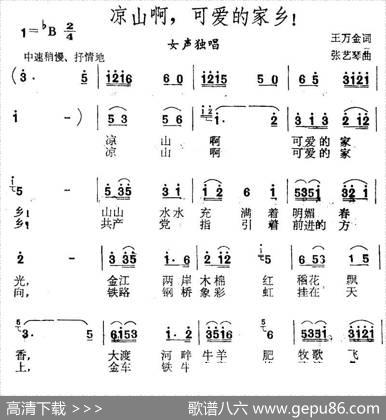 凉山啊，可爱的家乡！
1=♭B 2/4
女声独唱
王万金词
中速稍慢、抒情地
张艺琴曲
(3· 5 1216 6 0 1216 6 5 3121
1 -) 5 3 5 6 1 · 2 3 1 3 2 1 2
凉 山 啊 可爱的家
凉 山 啊 可爱的家
5 - 5 35 3 1 1 2 6 5351 3
乡！ 山山 水水 充 满 着 明媚 春
乡！ 共产 党 指 引 着 前进的 方
2 - 3 35 1 5 1 6 1 2 6 53 3
光， 金江 两岸木棉 红 稻花 飘
向， 铁路 钢桥象彩 虹 挂在 天
3· 5 6153 3 3516 5 6 35 3
香， 大渡 河畔牛羊 肥 牧歌 飞
上， 金车 铁牛
高清下载 >>>
歌谱八六 www.gepu86.com